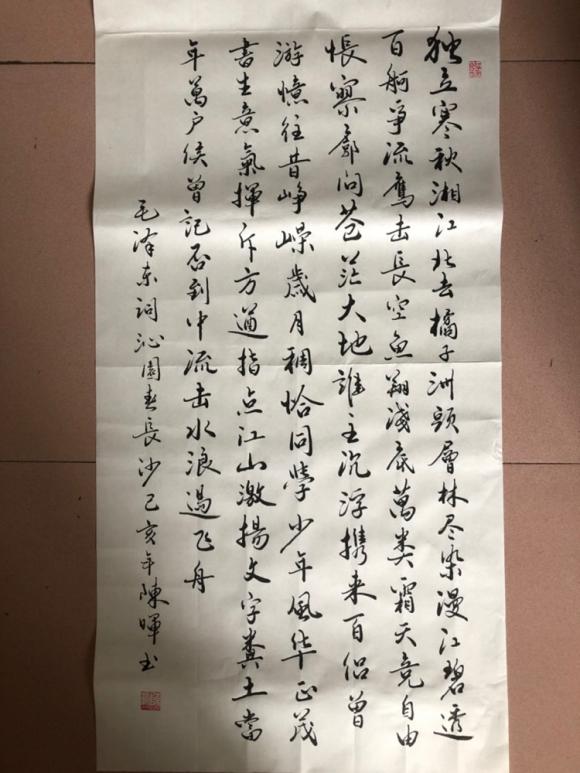 独立寒秋湘江北去橘子洲頭層林尽染漫江碧透
百舸爭流鹰击長空魚翔淺底萬类霜天竞自由
悵寥廓问苍茫大地誰主沉浮携来百侣曾
游憶往昔峥嵘歲月稠恰同学少年風华正茂
書生意氣揮斥方遒指点江山激揚文字粪土當
年萬户侯曾記否到中流击水浪遏飞舟
毛泽东词沁園春長沙己亥年陳暉书